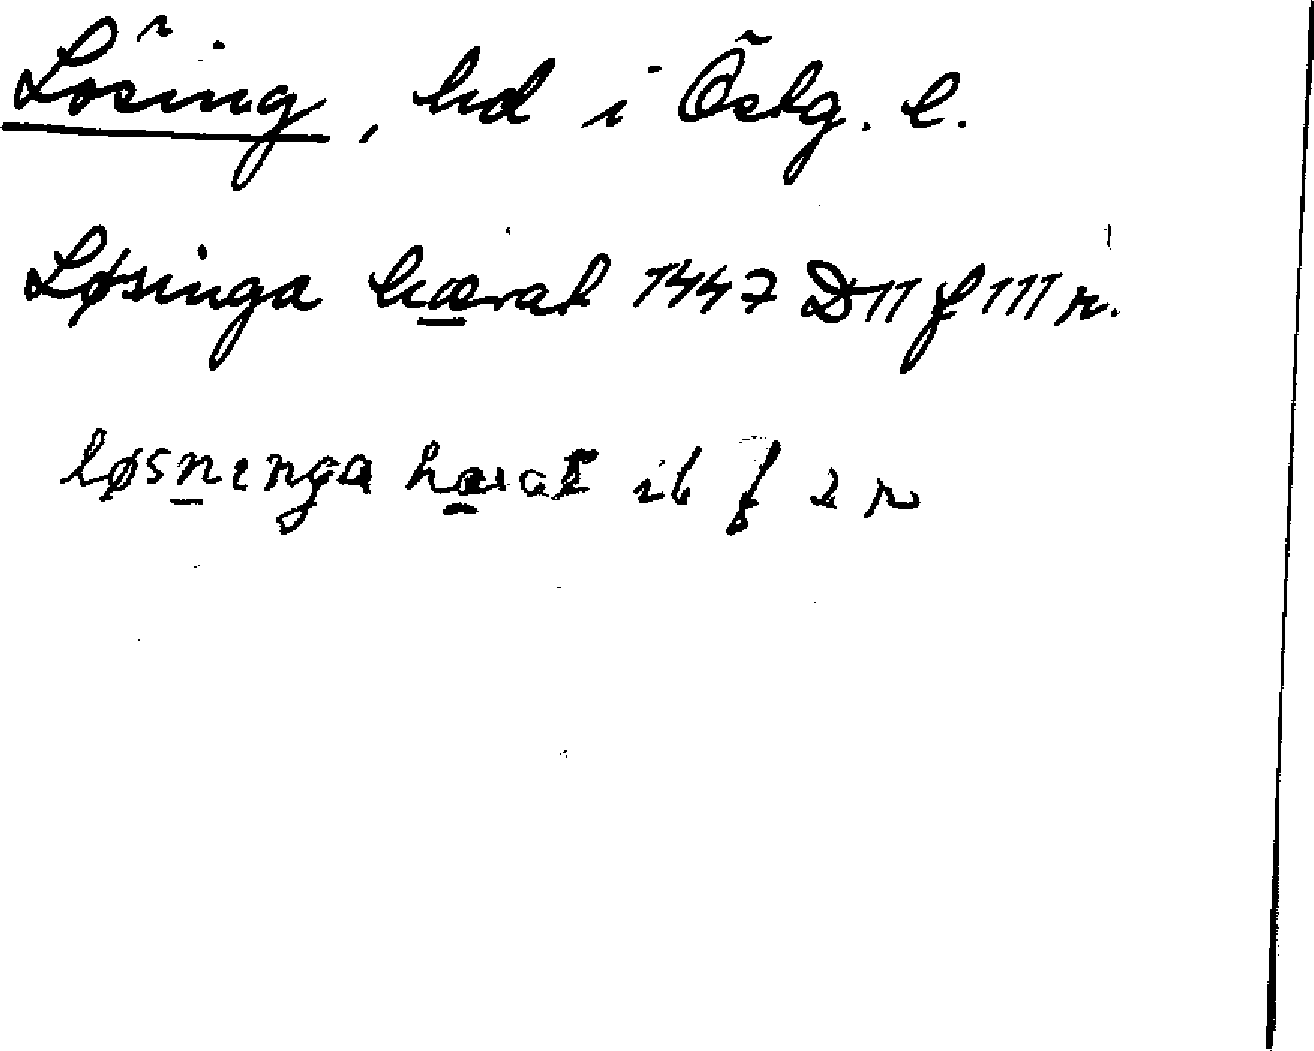 Lösing, hd i Östg. l.
Løsinga hærat 1447 D11 f 111 r.
løsninga hærat ib f 2 r